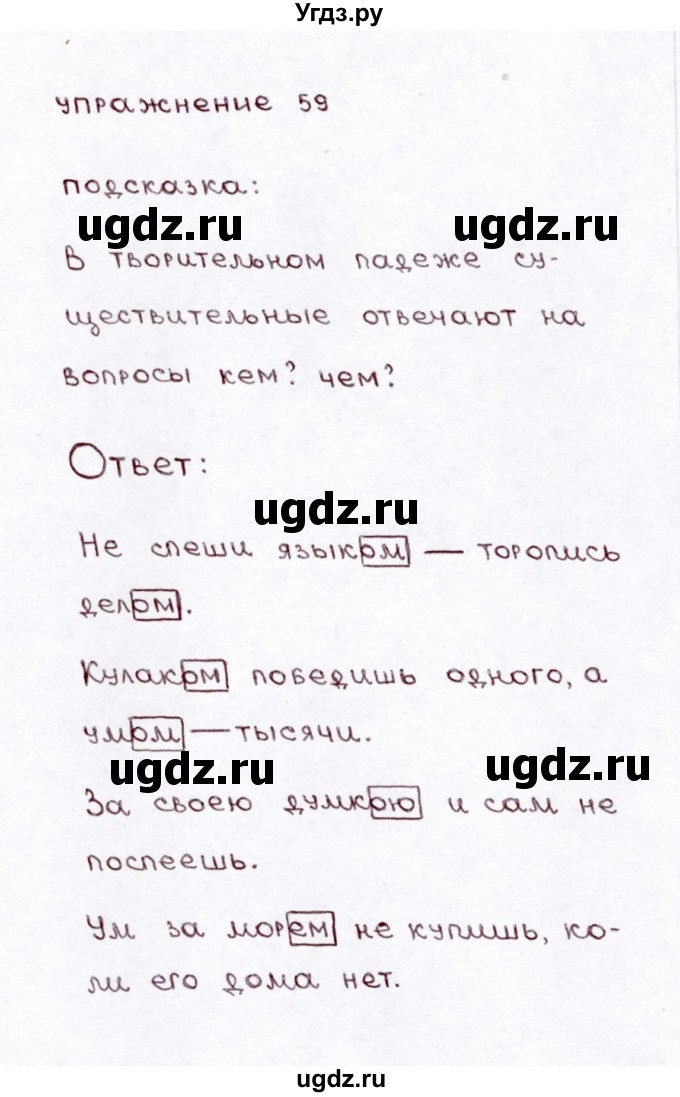 Угдз.ру
упражнение 59
подсказка:
ugdz.ru ugdz.ru
В творительном падеже су-
ществительные отвечают на
вопросы кем? чем?
Ответ:
ugdz.ru
Не спеши языком — торопись
делом.
Кулаком победишь одного, а
умом — тысячи.
ugdz.ru ugdz.ru
За своею думкою и сам не
поспеешь.
Ум за морем не купишь, ко-
ли его дома нет.
ugdz.ru